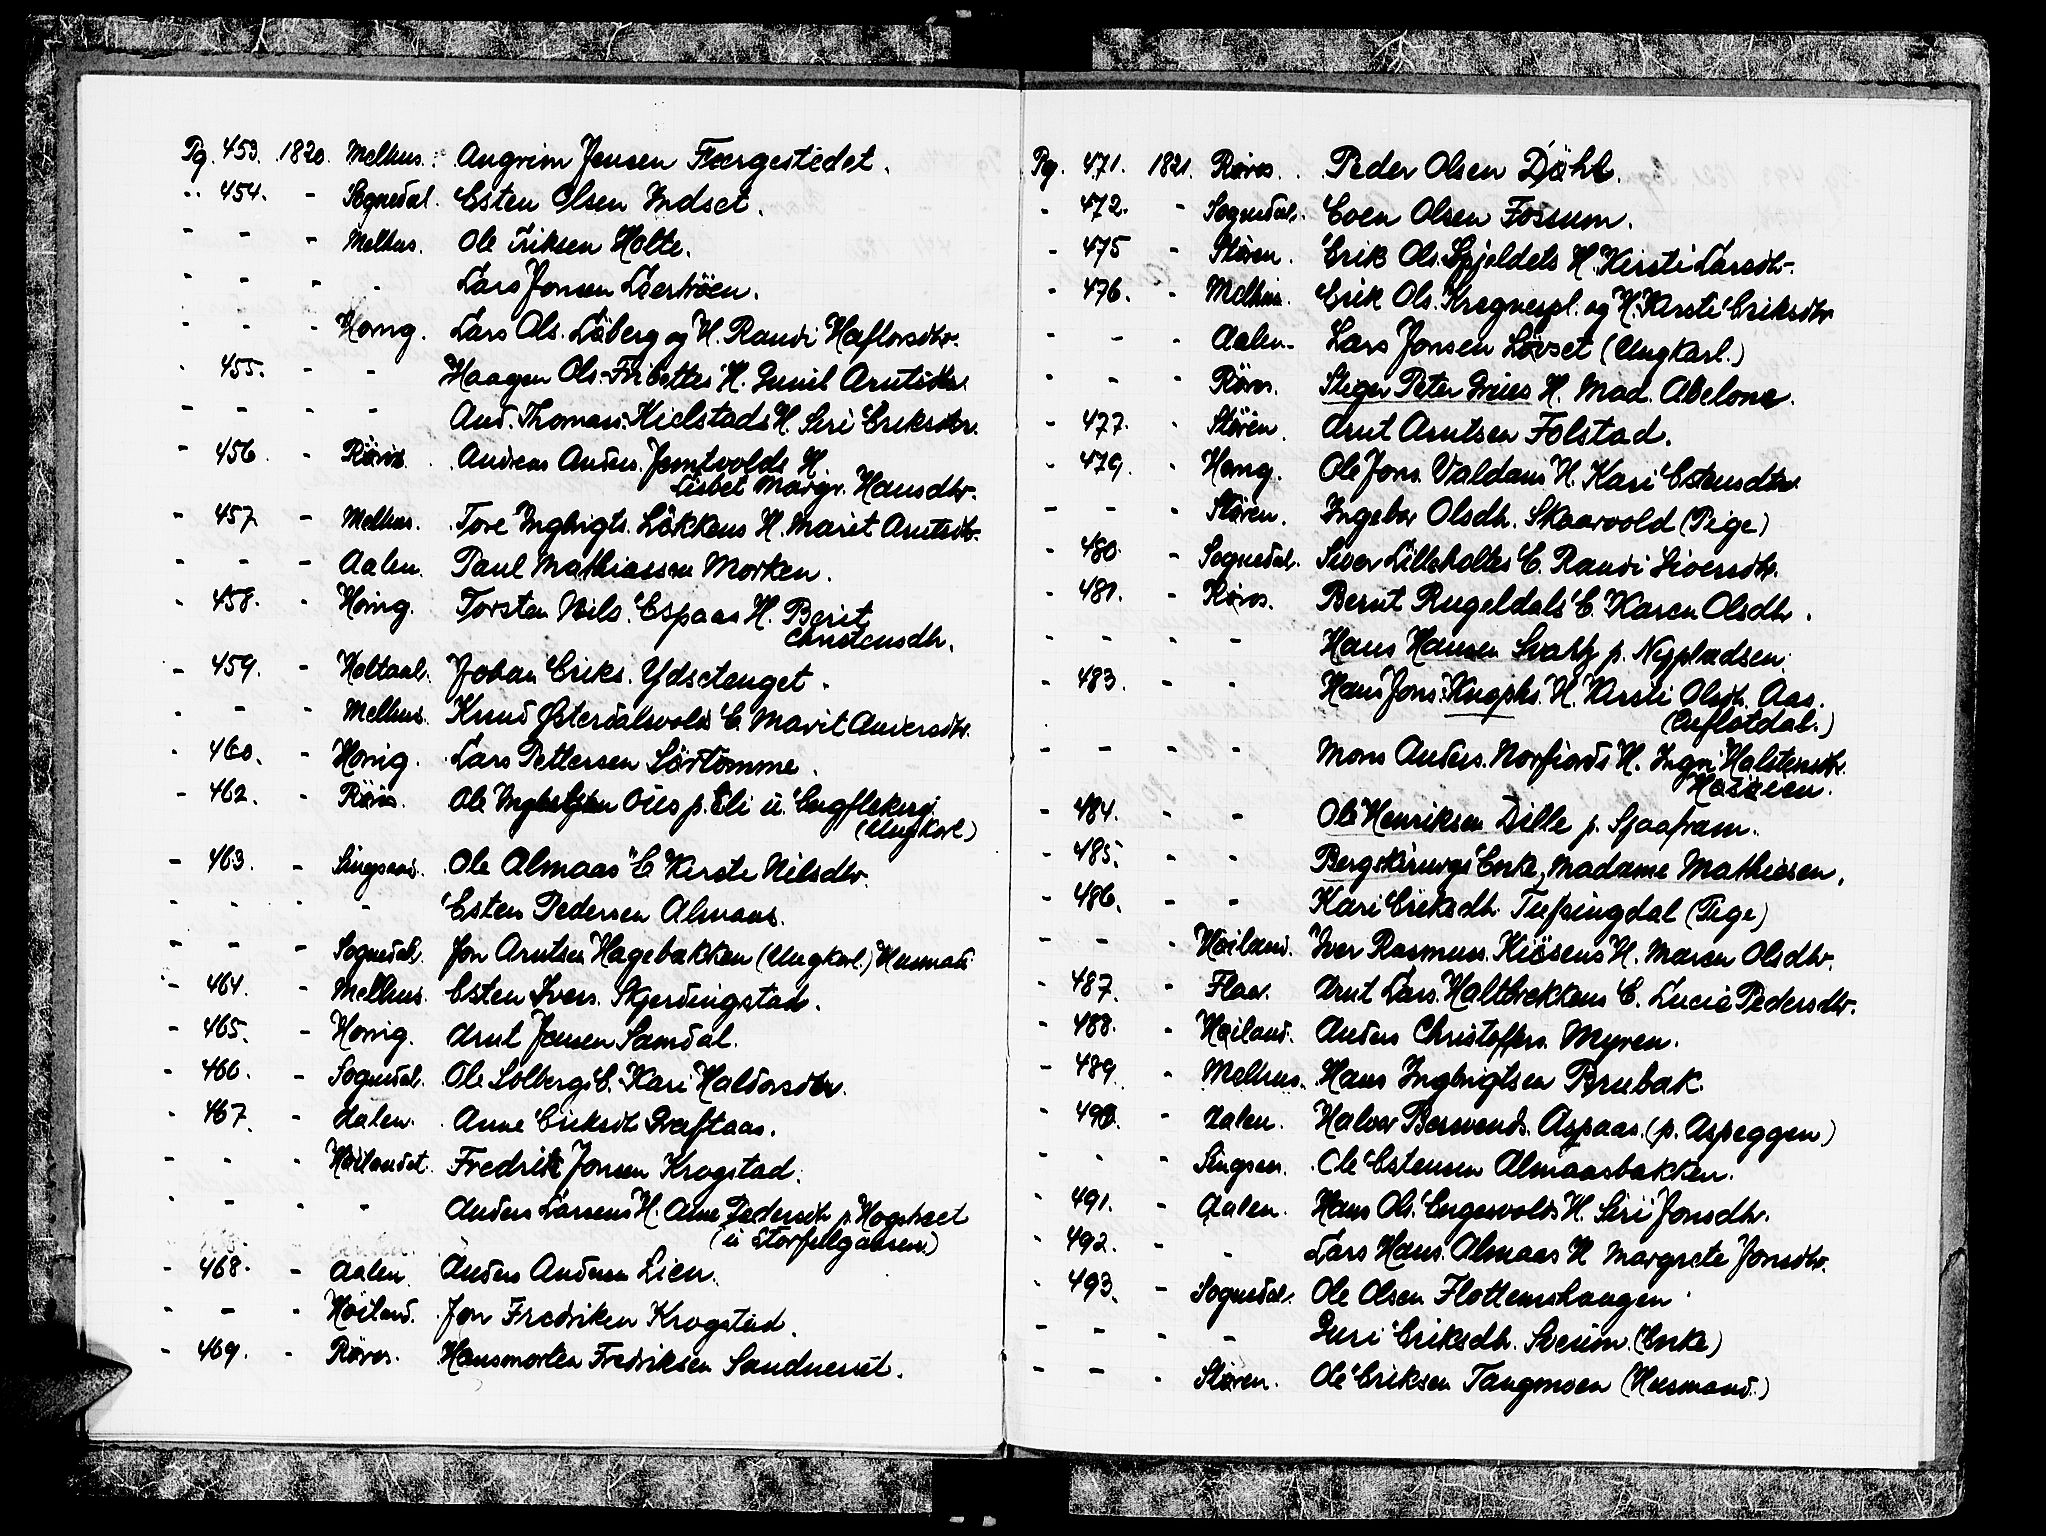 Pg. 453. 1820. Melhus. Angrim Jensen Færgestedet.
" 454. - Sognedal. Esten Olsen Indset.
- - - Melhus. Ole Eriksen Holte.
- - - - Lars Jonsen Leerhöen.
- - - Horrig. Lars Ols. Löberg og H. Randi Haflorsdtr.
- 455. - - Haagen Ols. Fribettes H. Gunil Arntsdtr.
- - - - And. Thomas. Kielstads H. Siri Eriksdtr.
- 456. - Röros. Andreas Anders. Jemtvolds H.
Lisbet Margr. Hansdtr.
- 457 - Melhus. Tore Ingbrigts. Løkkens H. Marit Arntsdtr.
- - - Aalen. Paul Mathiassen Morken.
- 458. - Horrig. Torsten Nils. Espaas H. Berit
Christensdtr.
- 459. - Holtaal. Johan Eriks. Ydsetenget.
- - - Melhus. Knud Østerdalsvolds E. Marit Andersdtr.
- 460. - Horrig. Lars Pettersen Sörtömme.
- 462. - Röros. Ole Ous p.
(Ungkarl)
- 463. - Singsaas. Ole Almaas' E Kirsti Nilsdtr.
- - - - Esten Pedersen Almaas.
- - - Sognedal. Jon Arntsen Hagebakken (Ungkarl.) Husmand
- 464. - Melhus. Esten Ivers. Skjerdingstad.
- 465. - Horrig. Arnt Jensen Samdal.
- 466. - Sognedal. Ole Solbergs E. Kari Haldorsdtr.
- 467. - Aalen. Anne Eriksdt. Græftaas.
- - - Höilandet. Fredrik Jonsen Krogstad.
- - - - Anders Larsens H. Ane Pedersdtr p. Hogstræt
(i Storfielgaasen)
- 468. - Aalen Anders Andersen Lien.
- - - Höiland. Jon Fredriksen Krogstad.
- 469. - Röros. Hansmorten Fredriksen Sandnesset.
Pg. 471. 1821. Röros. Peder Olsen Döhl.
- 472. - Sognedal. Even Olsen Fossum.
- 475 - Støren. Erik Ols. Spjeldets H. Kirsti Larsdtr.
- 476. - Melhus. Erik Ols. Kregnespl. og H. Kirsti Eriksdtr
- - - Aalen. Lars Jonsen Løvset (Ungkarl.)
- - - Röros. Steger Peter H. Mad. Abelone.
- 477. - Støren. Arnt Arntsen Folstad.
- 479. - Horrig. Ole Jons. Valdans H. Kari Estensdtr.
- - - Støren. Ingebor Olsdtr. Skaarvold (Pige)
- 480. - Sognedal. Siver Lilleholtes E. Randi Siversdtr.
- 481. - Röros. Bernt Rugeldals E. Karen Olsdtr.
- - - Hans Hansen Svahn p. Nyplædsen.
- 483. - - Hans Jons. H. Kirsti Olsdtr. Aas.
(Enflotdal.)
- - - - Mons Anders. Norfjords H. Ingri Halstensdtr.
Mosöien.
- 484. - - Ole Henriksen Dille p. Sjaafram.
- 485. - - Bergskirurgs Enke, Madame Mathiesen.
- 486. - - Kari Eriksdtr. Tufsingdal (Pige)
- - - Höiland. Iver Rasmuss. Kiösens H. Maren Olsdtr.
- 487. - Flaa. Arnt Lars. Haltbrekkens E. Lucia Pedersdtr.
- 488. - Höiland. Anders Christoffers. Myren.
- 489 - Melhus. Hans Ingbrigtsen Brubak.
- 490. - Aalen. Halvor Bersvends. Aspaas. (p. Aspeggen)
- - - Singsaas. Ole Estensen Almaasbakken.
- 491. - Aalen. Hans Ols. Engesvolds H. Siri Jonsdtr.
- 492. - - Lars Hans. Almaas H Margrete Jonsdtr.
- 493. - Sognedal. Ole Olsen Flottenshaugen.
- - - - Guri Eriksdtr. Sveum. (Enke)
- - - Støren. Ole Eriksen Tangmoen (Husmand.)